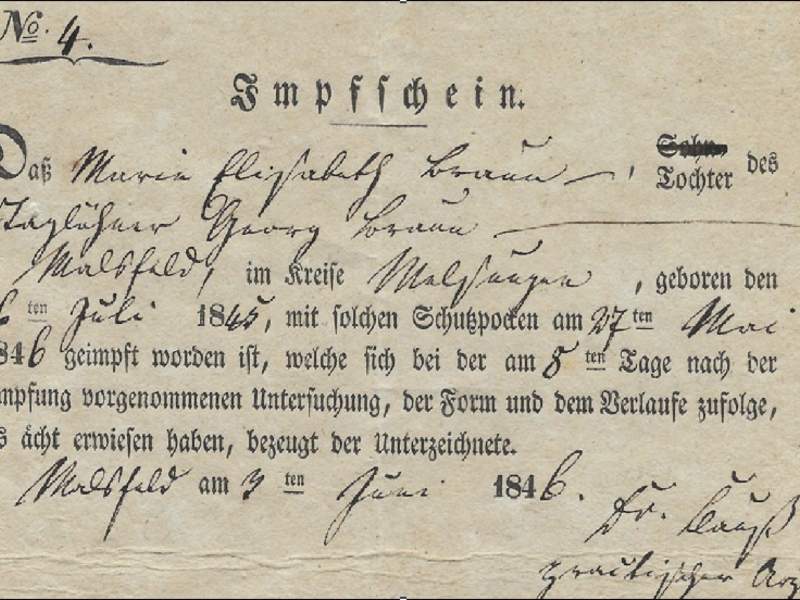 No. 4.
Impfschein.
Daß Marie Elisabeth Braun, Sohn Tochter des
Taglöhner Georg Braun
Malsfeld, im Kreise Melsungen, geboren den
6 ten Juli 1845, mit solchen Schutzpocken am 27 ten Mai
1846 geimpft worden ist, welche sich bei der am 8 ten Tage nach der
mpfung vorgenommenen Untersuchung, der Form und dem Verlaufe zufolge,
s ächt erwiesen haben, bezeugt der Unterzeichnete.
Malsfeld am 3 ten Juni 1846.
Dr.
practischer Arz